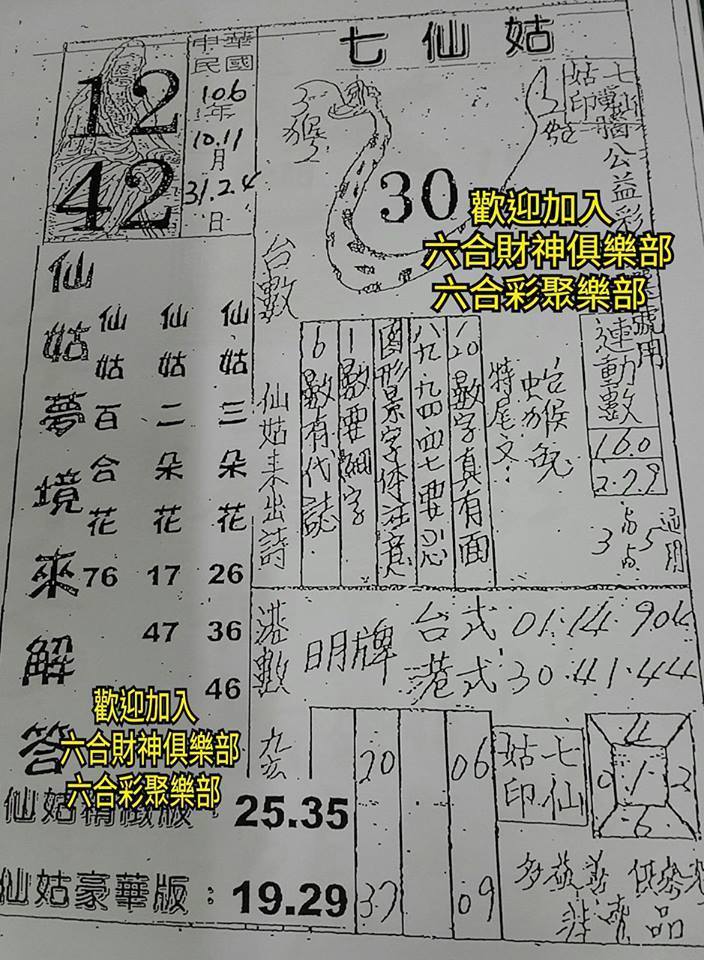 七仙姑
12
42
中華
民國
106
年
10.11
月
31.24
日
猴
30
蛇
七仙
姑印
公益彩
號用
歡迎加入
六合財神俱樂部
六合彩聚樂部
台數
仙姑來出詩
6數有代誌
1數要細字
圖形景字体注意
八九.九四.四七要心
1.20數字真有面
特尾文:
運動數
160
2.79
3
5
通用
仙姑夢境來解答
仙姑百合花
76
仙姑二朵花
17
47
仙姑三朵花
26
36
46
港數
明牌
台式 01.14.90
港式 30.41.44
九玄
20
06
37
09
七仙
姑印
4
0 1 2
6
歡迎加入
六合財神俱樂部
六合彩聚樂部
仙姑精緻版:25.35
仙姑豪華版:19.29
品